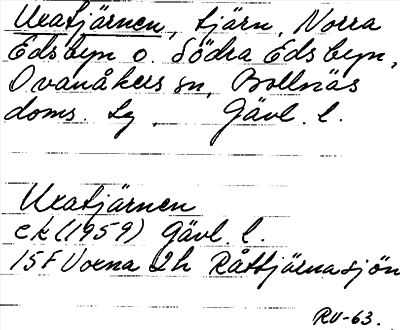 Uxatjärnen, tjärn, Norra
Edsbyn o. Södra Edsbyn,
Ovanåkers sn, Bollnäs
doms. Lg, Gävl. l.
Uxatjärnen
ek (1959) Gävl. l.
15F Voxna 2h Råttjärnasjön
RU-63.